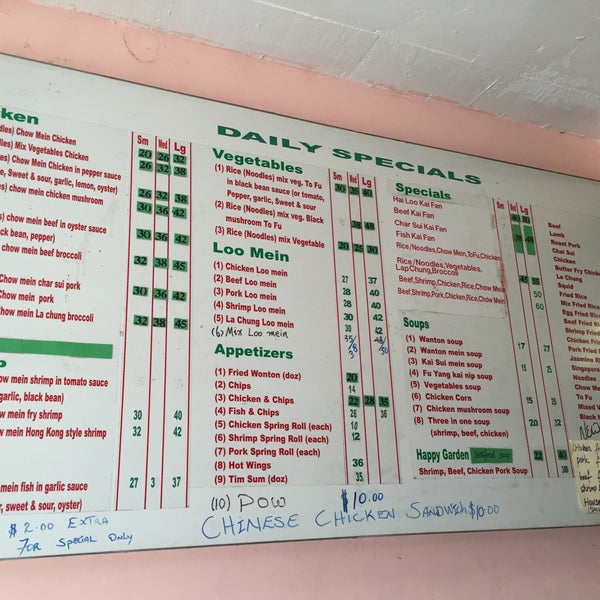 DAILY SPECIALS
ken
Sm Med Lg
Chow Mein Chicken 20 26 32
Mix Vegetables Chicken 26 32 38
Chow Mein Chicken in pepper sauce
e, Sweet & sour, garlic, lemon, oyster)
chow mein chicken mushroom 26 32 38
30 36 42
s) chow mein beef in oyster sauce
black bean, pepper) 30 36 42
chow mein beef broccoli
32 38 45
how mein char sui pork
how mein pork 30 36 42
how mein La chung broccoli
32 38 45
ow mein shrimp in tomato sauce
garlic, black bean)
ow mein fry shrimp 30 40
w mein Hong Kong style shrimp 32 42
mein fish in garlic sauce 27 3 37
r, sweet & sour, oyster)
$2.00 EXTRA
FOR SPECIAL ONLY
Vegetables
Sm Med Lg
(1) Rice (Noodles) mix veg. To Fu 30 35 40
in black bean sauce (or tomato,
Pepper, garlic, Sweet & sour
(2) Rice (Noodles) mix veg. Black 38 48
mushroom To Fu
(3) Rice (Noodles) mix Vegetable 20 25 30
Loo Mein
(1) Chicken Loo mein
(2) Beef Loo mein 27 37
(3) Pork Loo mein 28 40
(4) Shrimp Loo mein 28 40
(5) La Chung Loo mein 30 42
(6) Mix Loo mein
Appetizers
(1) Fried Wonton (doz) 20
(2) Chips 14
(3) Chicken & Chips 22 28 35
(4) Fish & Chips 26 36
(5) Chicken Spring Roll (each) 10
(6) Shrimp Spring Roll (each) 12
(7) Pork Spring Roll (each)
(8) Hot Wings 36
(9) Tim Sum (doz) 35
(10) POW $10.00
CHINESE CHICKEN SANDWICH $10.00
Specials
Sm Lg
Hai Loo Kai Fan
Beef Kai Fan
Char Sui Kai Fan
Fish Kai Fan
Rice/Noodles,Chow Mein,ToFu,Chicken
Rice/Noodles,Vegetables,
LapChung,Broccoli
Beef,Shrimp,Chicken,Rice,Chow Mein 45 55
Beef,Shrimp,Pork,Chicken,Rice,Chow Mein 50
60
Soups
(1) Wanton soup
(2) Wanton mein soup 17 27
(3) Kai Sui mein soup
(4) Fu Yang kai nip soup
(5) Vegetables soup
(6) Chicken Corn
(7) Chicken mushroom soup
(8) Three in one soup
(shrimp, beef, chicken)
Happy Garden Seafood soup 32 40
Shrimp, Beef, Chicken Pork Soup 38
Beef
Lamb
Roast Pork
Chai Sui
Chicken
Butter Fry Chicken
La Chung
Squid
Fried Rice
Mix Fried Rice
Egg Fried Rice
Beef Fried
Shrimp Fried
Chicken Fried
Pork Fried
Jasmine R
Singapore
Noodles
Chow Mein
To Fu
Mixed V
Black
New
pork
beef
shrimp